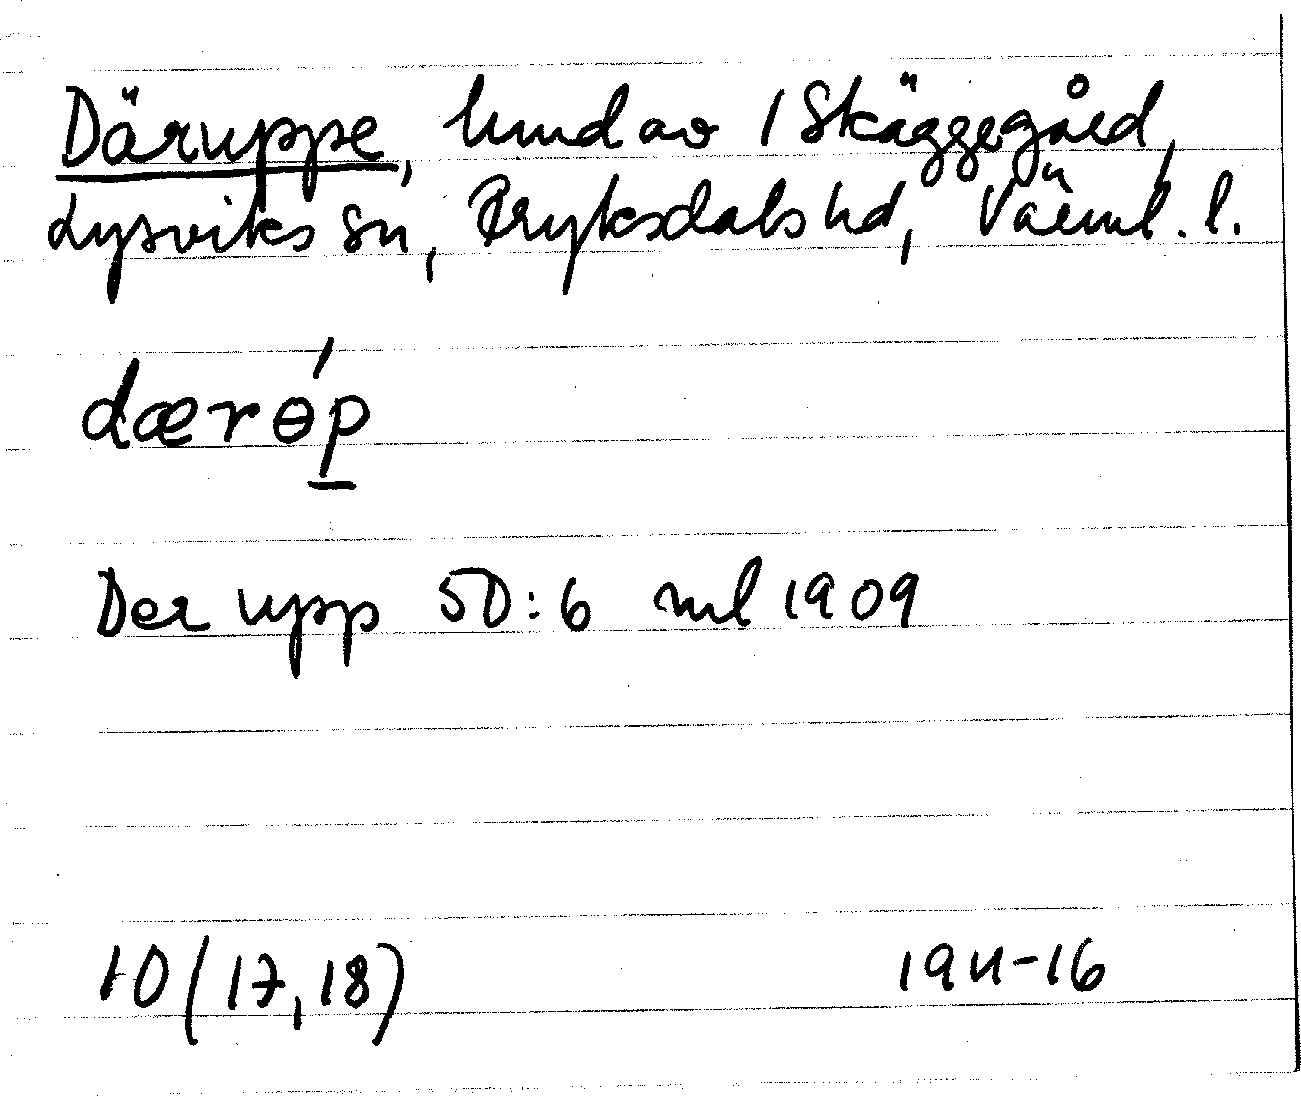 Däruppe, hmd av 1 Skäggegård,
Lysviks sn, Fryksdals hd, Värml. l.
dærɵ́p
Der upp 5D:6 ml 1909
10 (17, 18) 1911-16